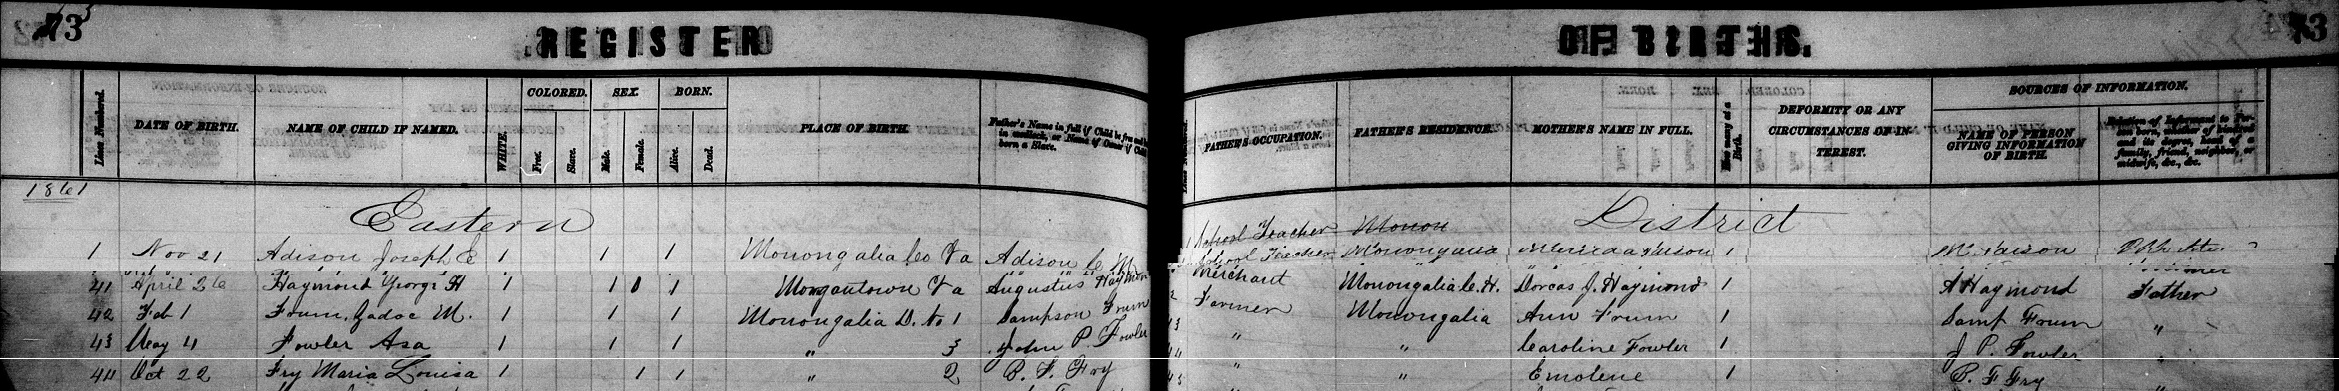 73 REGISTER OF BIRTHS. 73
COLORED. SEX. BORN. SOURCES OF INFORMATION.
Lines Numbered. DATE OF BIRTH. NAME OF CHILD IF NAMED. WHITE. Free. Slave. Male. Female. Alive. Dead. PLACE OF BIRTH. Father's Name in full if Child be free and born in wedlock, or Name of Owner if Child born a Slave. FATHER'S OCCUPATION. FATHER'S RESIDENCE. MOTHER'S NAME IN FULL. How many at a Birth. DEFORMITY OR ANY CIRCUMSTANCES OF INTEREST. NAME OF PERSON GIVING INFORMATION OF BIRTH. Relation of Informant to Person born, whether of kindred and its degree, head of a family, friend, neighbor, or midwife, &c., &c.
1861
Eastern District
School Teacher Monon
1 Nov 21 Adison Joseph E 1 1 1 Monongalia Co Va Adison School Teacher Monongalia 1
41 April 26 Haymond George H 1 1 1 1 Morgantown Va Augustus Haymond Merchant Monongalia C. H. Dorcas J. Haymond 1 A Haymond Father
42 Feb 1 Frum Zadoc M. 1 1 1 Monongalia D. No 1 Sampson Frum Farmer Monongalia Ann Frum 1 Samp Frum "
43 May 4 Fowler Asa 1 1 1 " 3 John P. Fowler " " Caroline Fowler 1 J P. Fowler
44 Oct 22 Fry Maria Louisa 1 1 1 " 2 P. F. Fry " " Emolene 1 P. F Fry "